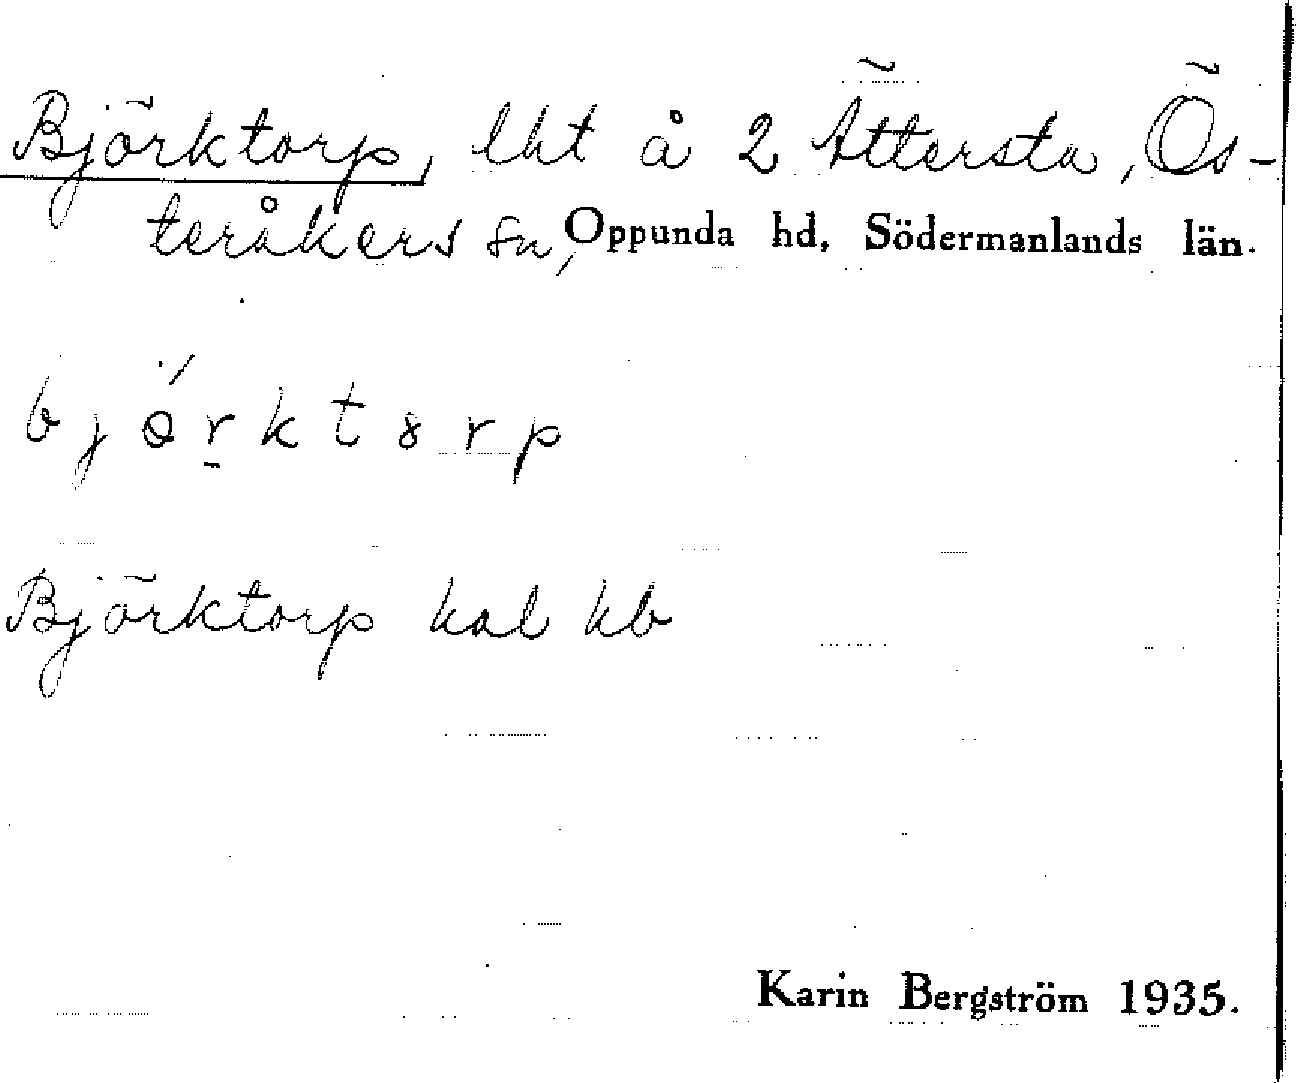 Björktorp, lht å 2 Ättersta, Ös-
teråkers sn, Oppunda hd, Södermanlands län.
bjö́rktorp
Björktorp hal kb
Karin Bergström 1935.